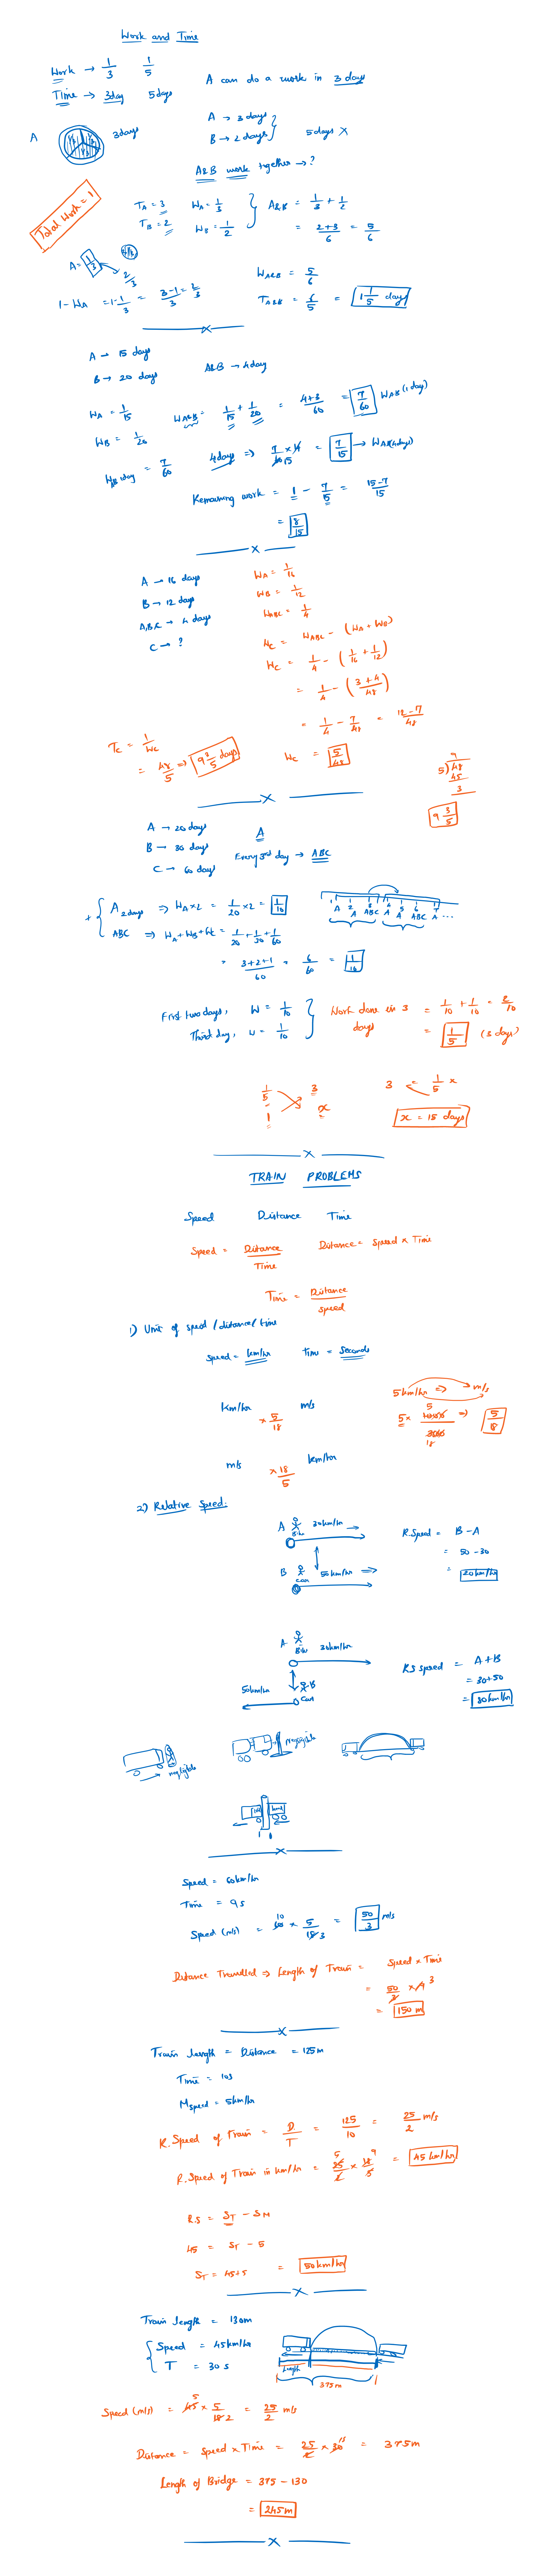 Work and Time
Work → 1/3 1/5
Time → 3day 5days
A can do a work in 3 days
A 1/3 1/3 1/3 3days
A → 3 days
B → 2 days } 5days X
A&B work together → ?
Total Work = 1
T_A = 3 W_A = 1/3
T_B = 2 W_B = 1/2
A&B = 1/3 + 1/2
= 2+3/6 = 5/6
A = 1/3 2/3
1 - W_A = 1 - 1/3 = 3-1/3 = 2/3
W_A&B = 5/6
T_A&B = 6/5 = 1 1/5 days
X
A → 15 days
B → 20 days A&B → 4day
W_A = 1/15 W_A&B = 1/15 + 1/20 = 4+3/60 = 7/60 W_AB (1 day)
W_B = 1/20
W_AB 1day = 7/60 4day ⇒ 7/60 15 × 4 = 7/15 → W_AB(4days)
Remaining work = 1 - 7/15 = 15-7/15
= 8/15
X
A → 16 days
B → 12 days
A,B,C → 4 days
C → ?
W_A = 1/16
W_B = 1/12
W_ABC = 1/4
W_C = W_ABC - (W_A + W_B)
W_C = 1/4 - (1/16 + 1/12)
= 1/4 - (3+4/48)
= 1/4 - 7/48 = 12-7/48
W_C = 5/48
T_C = 1/W_C
= 48/5 ⇒ 9 3/5 days
9
5) 48
45
3
9 3/5
X
A → 20 days A
B → 30 days Every 3rd day → ABC
C → 60 day
+ { A 2days ⇒ W_A × 2 = 1/20 × 2 = 1/10
ABC ⇒ W_A + W_B + W_C = 1/20 + 1/30 + 1/60
= 3+2+1/60 = 6/60 = 1/10
1 2 3 4 5 6 7
A A ABC A A ABC A ...
First two days, W = 1/10
Third day, W = 1/10
Work done in 3 days = 1/10 + 1/10 = 2/10
= 1/5 (3 days)
1/5 3
1 x
3 = 1/5 x
x = 15 days
X
TRAIN PROBLEMS
Speed Distance Time
Speed = Distance/Time Distance = Speed × Time
Time = Distance/speed
1) Unit of speed/distance/time
speed = km/hr time = seconds
km/hr × 5/18 m/s
5km/hr ⇒ m/s
5 × 1000 5/3600 18 ⇒ 5/18
m/s × 18/5 km/hr
2) Relative Speed:
A Bike 30km/hr
B Car 50km/hr ⇒
R.Speed = B - A
= 50 - 30
= 20km/hr
A Bike 30km/hr
50km/hr B Car
R.S speed = A + B
= 30+50
= 80km/hr
negligible
negligible
X
Speed = 60km/hr
Time = 9s
Speed (m/s) = 60 10 × 5/18 3 = 50/3 m/s
Distance Travelled ⇒ Length of Train = Speed × Time
= 50/3 × 9 3
= 150 m
X
Train length = Distance = 125m
Time = 10s
M speed = 5km/hr
R.Speed of Train = D/T = 125/10 = 25/2 m/s
R.Speed of Train in km/hr = 25 5/2 × 18 9/5 = 45 km/hr
R.S = S_T - S_M
45 = S_T - 5
S_T = 45+5 = 50km/hr
X
Train length = 130m
Speed = 45km/hr
T = 30 s
Length
375 m
Speed (m/s) = 45 5 × 5/18 2 = 25/2 m/s
Distance = Speed × Time = 25/2 × 30 15 = 375m
Length of Bridge = 375 - 130
= 245m
X